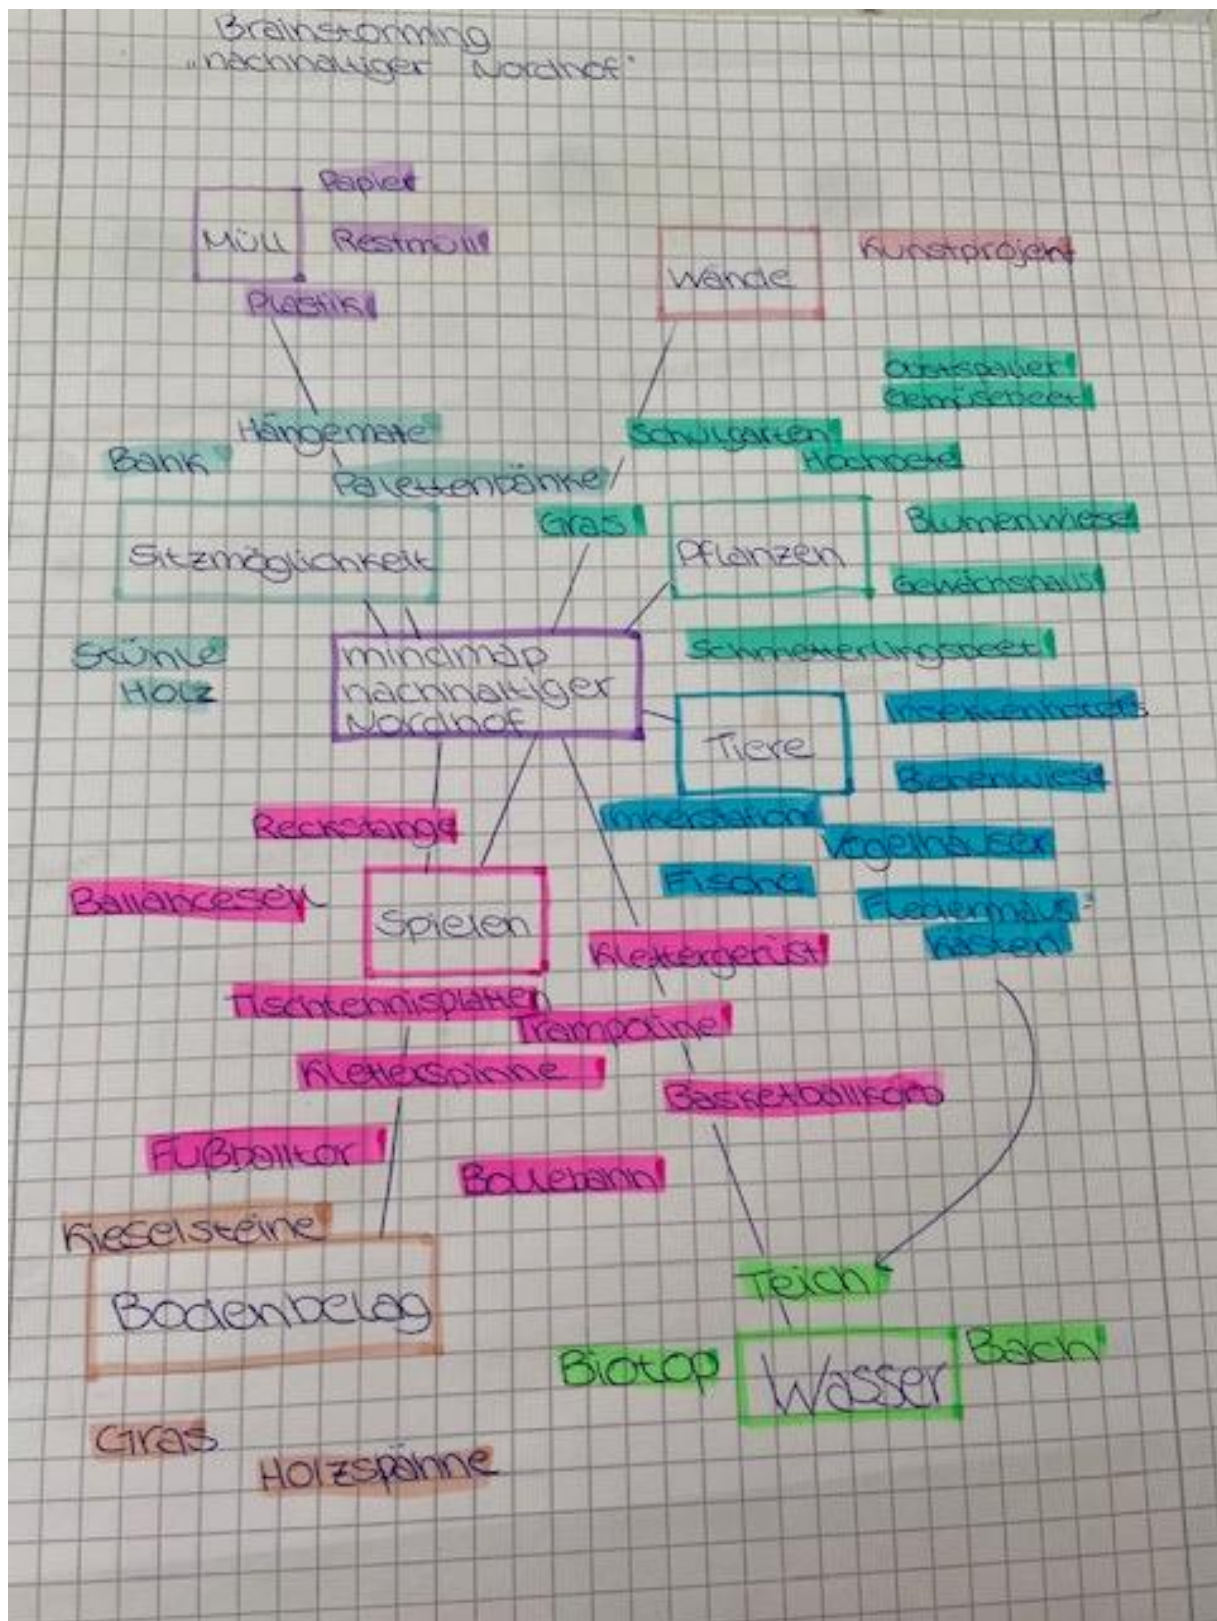 Brainstorming
„nachhaltiger Nordhof"
Papier
Müll
Restmüll
Plastik
Wände
Kunstprojekt
Obstspalier
Gemüsebeet
Schulgarten
Hochbete
Hängemate
Bank
Palettenbänke
Gras
Sitzmöglichkeit
Pflanzen
Blumenwiese
Gewächshaus
Stühle
Holz
mindmap
nachhaltiger
Nordhof
Schmetterlingsbeet
Tiere
Insektenhotels
Bienenwiese
Imkerstation
Vogelhäuser
Fische
Fledermaus-
kästen
Reckstange
Ballanceseil
Spielen
Klettergerüst
Tischtennisplatten
Trampoline
Kletterspinne
Basketballkorb
Fußballtor
Boulebahn
Kieselsteine
Bodenbelag
Gras
Holzspänne
Teich
Biotop
Wasser
Bach